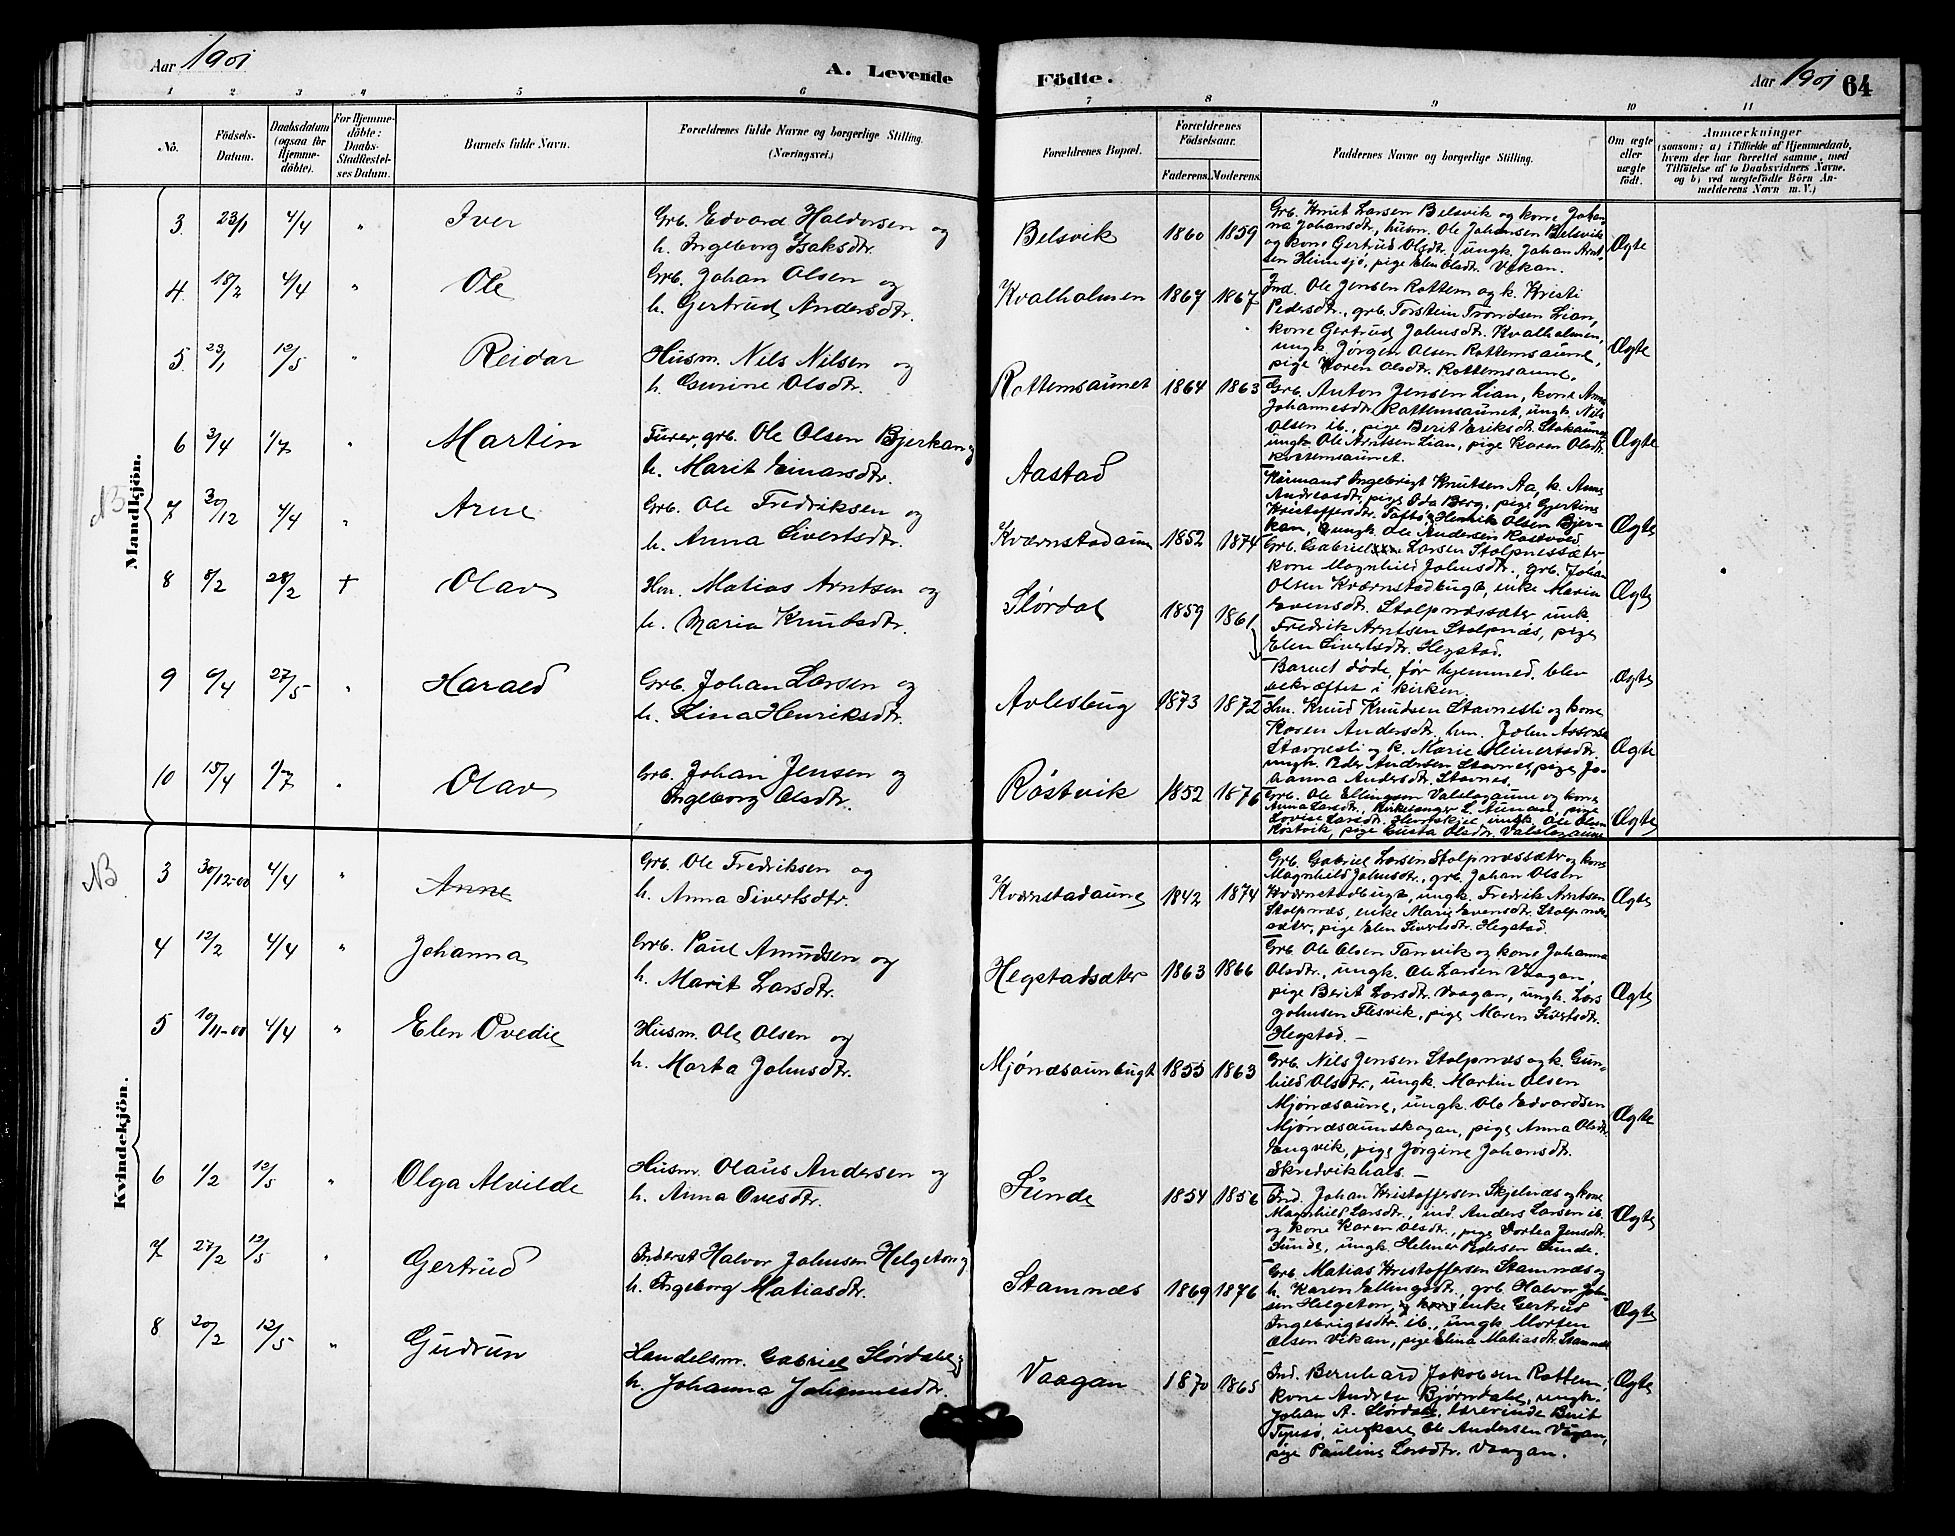 Aar 1901
A. Levende
Födte.
Aar 1901
64
1 2 3 4 5 6 7 8 9 10 11
No.
Födsels-
Datum.
Daabsdatum
(ogsaa for
Hjemme-
döbte).
For Hjemme-
döbte:
Daabs-
Stadfæstel-
ses Datum.
Barnets fulde Navn.
Forældrenes fulde Navne og borgerlige Stilling.
(Næringsvei.)
Forældrenes Bopæl.
Forældrenes
Födselsaar.
Faderens. Moderens.
Faddernes Navne og borgerlige Stilling.
Om ægte
eller
uægte
födt.
Anmærkninger
(saasom: a) i Tilfælde af Hjemmedaab,
hvem der har forrettet samme, med
Tilföielse af to Daabsvidners Navne.
og b) ved uægtefödte Börn An-
melderens Navn m. V.)
Mandkjön.
3. 23/1 4/4 " Iver
Grb. Edvard Haldorsen og
h. Ingeborg Isaksdtr.
Belsvik 1860 1859
Grb. Knut Larsen Belsvik og kone Johan-
na Johansdtr., husm. Ole Johansen Belsvik
og kone Gertrud Olsdtr., ungk. Johan Arnt-
sen Heimsjø, pige Elen Olsdtr. Vikan.
Ægte
4. 18/2 4/4 " Ole
Grb. Johan Olsen og
h. Gertrud Andersdtr.
Kvalholmen 1867 1867
Ind. Ole Jensen Rottem og k. Kristi
Pedersdtr., grb. Torstein Trondsen Lian,
kone Gertrud Johnsdtr. Kvalholmen,
ungk. Jørgen Olsen Rottemsaune,
pige Karen Olsdtr. Rottemsaune.
Ægte
5. 23/1 12/5 " Reidar
Husm. Nels Nelsen og
h. Gurine Olsdtr.
Rottemsaunet 1864 1863
Grb. Anton Jensen Lian, kone Anne
Johannesdtr. Rottemsaunet, ungk. Nils
Olsen ib., pige Berit Eriksdtr. Stokaunet
ungk. Ole Arntsen Lian, pige Karen Olsdtr.
Rottemsaunet.
Ægte
6 3/4 1/7 " Martin
Furer, grb. Ole Olsen Bjerkan og
h. Marit Einarsdtr.
Aastad
Kirmand Ingebrigt Knutsen Aa, k. Anne
Andreasdtr, pige Oda Berg, pige Gjertine
Kristoffersdtr. Henrik Olsen Bjer-
kan, ungk. Ole Andersen Rostvold
Ægte
7 30/12 4/4 " Arne
Grb. Ole Fredriksen og
h. Anna Sivertsdtr.
Kværnstadaune 1852 1874
Grb. Gabriel Larsen Stolpnessæter
kone Magnhild Johnsdtr., grb. Johan
Olsen Kværnstadbugt, enke Marie
Evensdtr. Stolpnæssæter, unk.
Fredrik Arntsen Stolpnæs, pige
Elen Sivertsdtr. Hegstad.
Ægte
8 8/2 28/2 + Olav
Hm. Matias Arntsen og
h. Maria Knutsdtr.
Slørdal 1859 1861
Barnet døde, før hjemmed. blev
bekræftet i kirken.
Ægte
9 6/4 27/5 " Harald
Grb. Johan Larsen og
h. Lina Henriksdtr.
Avlesbug 1873 1872
Hm. Knud Knudsen Stavnesli og kone
Karen Andersdtr. hm. John Assersen
Stavnesli og k. Marie Meinertsdtr.
ungk. Peder Andersen Stavnes, pige Jo-
hanna Andersdtr. Stavnes.
Ægte
10 15/4 1/7 " Olav
Grb. Johan Jensen og
Ingeborg Olsdtr.
Røstvik 1852 1876
Grb. Ole Ellingsen Valslagaune og kone
Anna Larsdtr., Kirkesanger L. Aunan, pige
Lovise Larsdtr. ungk. Ole Olsen
Røstvik, pige Gusta Olsdtr. Valslagaune
Ægte
NB
Kvindekjön.
NB
3 30/12-00 4/4 " Anne
Grb. Ole Fredriksen og
h. Anna Sivertsdtr.
Kværnstadaune 1842 1874
Grb. Gabriel Larsen Stolpnæssæter og kone
Magnhild Johnsdtr., grb. Johan Olsen
Kværnstadbugt, ungk. Fredrik Arntsen
Stolpnæs, enke Marie Evensdtr. Stolpnæs-
sæter, pige Elen Sivertsdtr. Hegstad.
Ægte
4 12/2 4/4 " Johanna
Grb. Paul Amundsen og
h. Marit Larsdtr.
Hegstadsæter 1863 1866
Grb. Ole Olsen Tanvik og kone Johanna
Olsdtr., ungk. Ole Larsen Vaagan,
pige Berit Larsdtr. Vaagan, ungk. Lars
Johnsen Flesvik, pige Maren Sivertsdtr.
Hegstad. -
Ægte
5 10/11-00 4/4 " Elen Ovedie
Husm. Ole Olsen og
h. Marta Johnsdtr.
Mjønæsaunbugt 1855 1863
Grb. Nils Jensen Stolpnæs og k. Gun-
hild Olsdtr., ungk. Martin Olsen
Mjønæsaune, ungk. Ole Edvardsen
Mjønæsaunskogan, pige Anna Olsdtr.
Engvik, pige Jørgine Johansdtr.
Skredvikhals -
Ægte
6 1/2 12/5 " Olga Alvilde
Husm. Olaus Andersen og
h. Anna Ovesdtr.
Sunde 1854 1856
Ind. Johan Kristoffersen Skjelnæs og kone
Magnhild Larsdtr., ind. Anders Larsen ib.
og kone Karen Olsdtr., pige Dortea Jensdtr.
Sunde, ungk. Helmer Pedersen Sunde.
Ægte
7 27/2 12/5 " Gertrud
Inderst Halvor Johnsen Helgeton og
h. Ingeborg Matiasdtr.
Stamnæs 1869 1876
Grb. Matias Kristoffersen Stamnæs og
h. Karen Ellingsdtr., grb. Halvor Joh-
sen Helgeton, og enke Gertrud
Ingebrigtsdtr. ib., ungk. Morten
Olsen Vikan, pige Elina Matiasdtr. Stamnæs
Ægte
8 20/2 12/5 " Gudrun
Handelsm. Gabriel Slørdahl og
h. Johanna Johannesdtr.
Vaagan 1870 1865
Ind. Bernhard Jakobsen Rottem,
kone Andrea Bjørndahl, ungk.
Johan A. Slørdahl, lærerinde Berit
ungkare Ole Andersen Vaagan,
pige Pauline Larsdtr. Vaagan.
Ægte